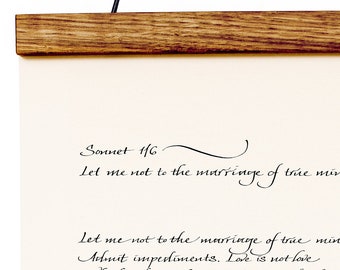 Sonnet 116
Let me not to the marriage of true min
Let me not to the marriage of true min
Admit impediments. Love is not love